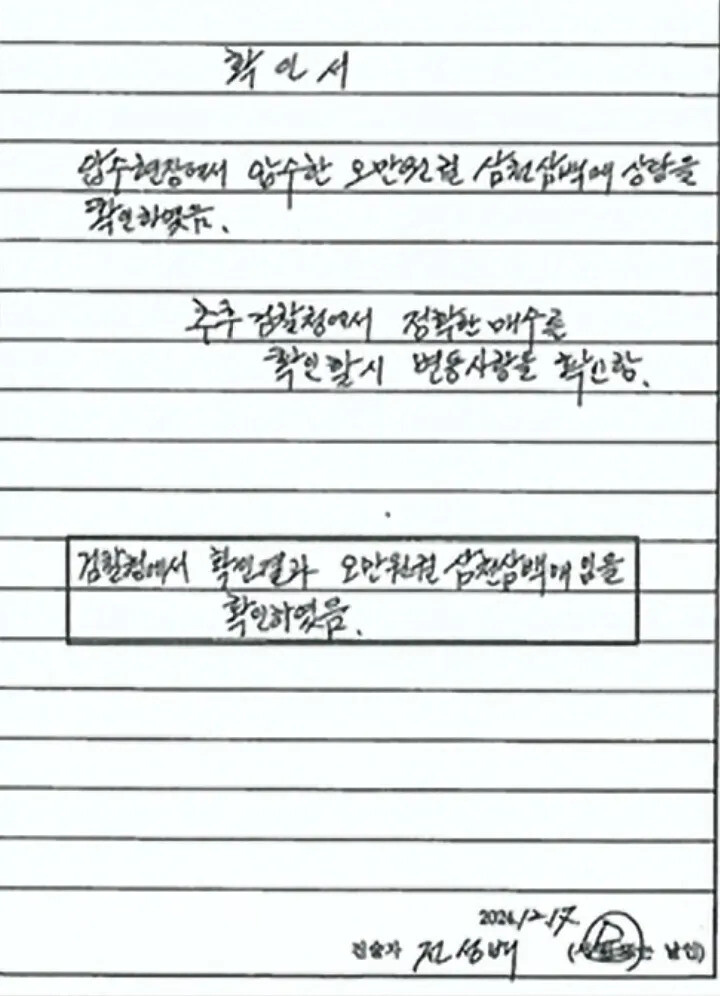 확인서
압수현장에서 압수한 오만원권 삼천삼백매 상당을
확인하였음.
추후 검찰청에서 정확한 매수를
확인할시 변동사항을 확인함.
검찰청에서 확인결과 오만원권 삼천삼백매임을
확인하였음.
2024.12.17
진술자 전성배 (서명 또는 날인)